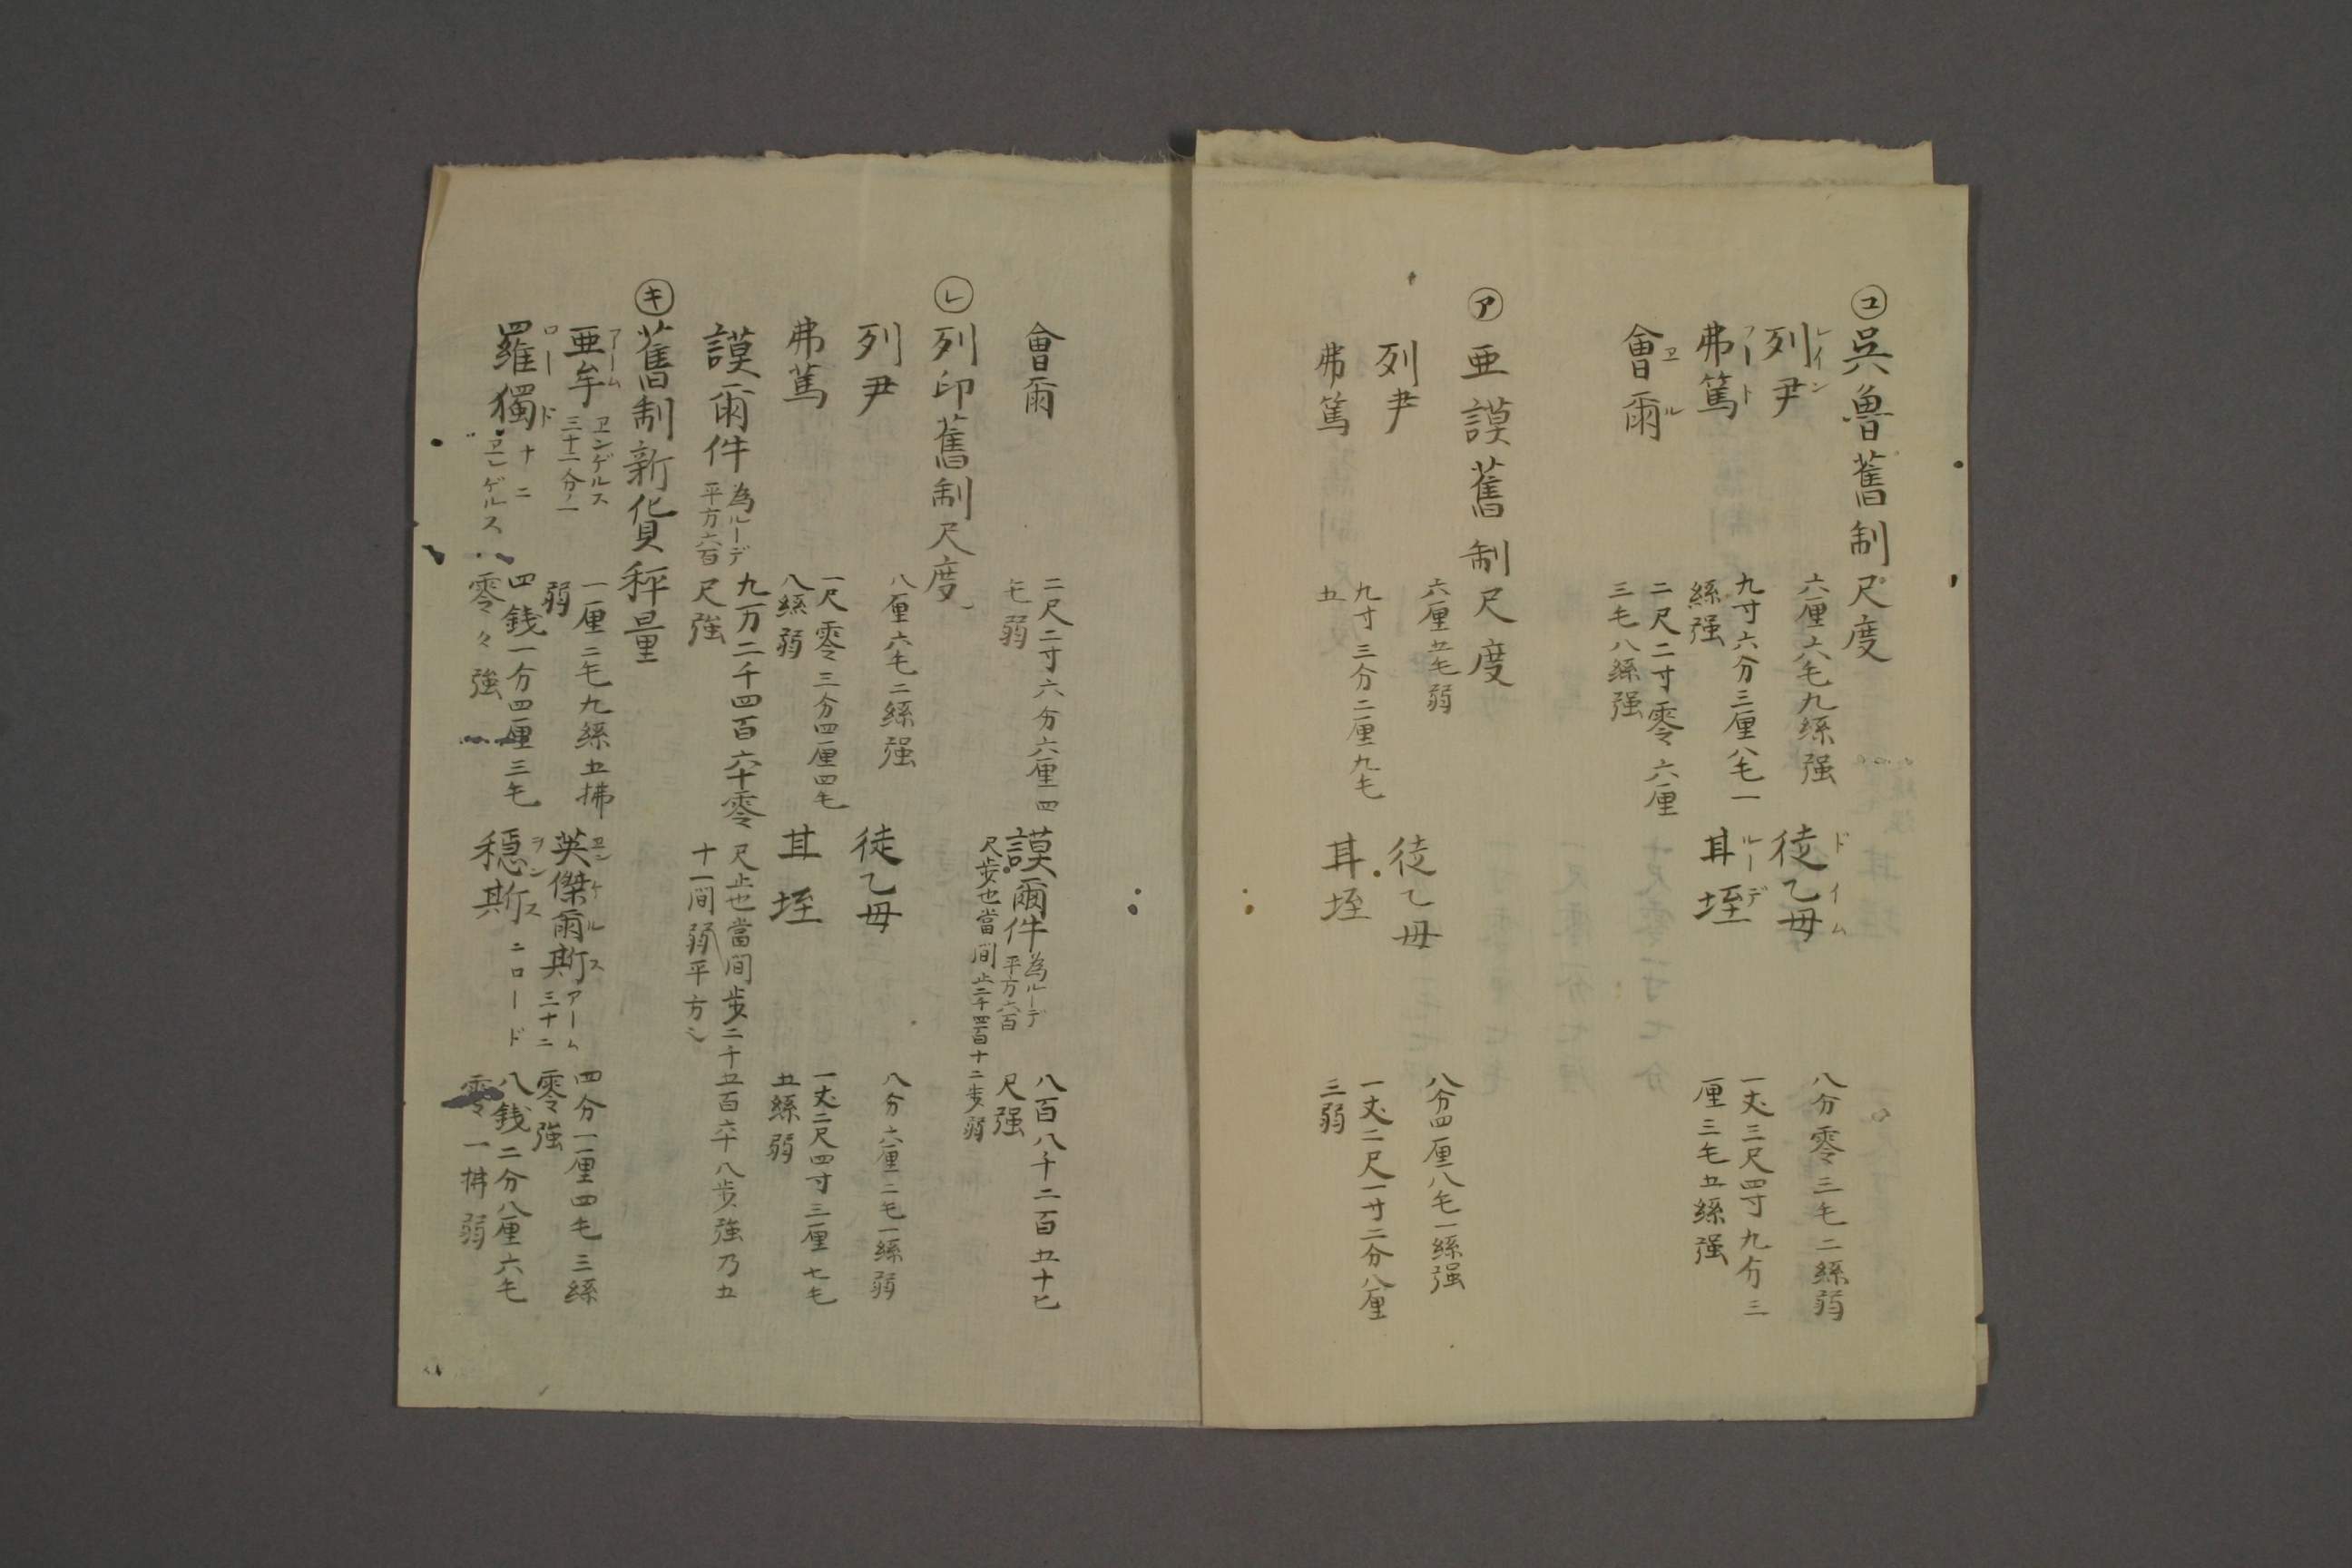 ㋙呉魯舊制尺度
列尹 レイン 六厘六毛九絲强 徒乙毋 ドイム 八分零三毛二絲弱
弗篤 フート 九寸六分三厘八毛一
絲强 垤 ルーデ 一丈三尺四寸九分三
厘三毛五絲强
會爾 ヱル 二尺二寸零六厘
三毛八絲强
㋐亜謨舊制尺度
列尹 六厘五毛弱 徒乙毋 八分四厘八毛一絲强
弗篤 九寸三分二厘九毛
五 垤 一丈二尺一寸二分八厘
三弱
會爾 二尺二寸六分六厘四
毛弱 謨爾件 為ルーデ平方六百 八百八千二百五十七
尺强
尺步也當間止二千四百十二步弱
㋹列印舊制尺度
列尹 八厘六毛二絲强 徒乙毋 八分六厘二毛一絲弱
弗篤 一尺零三分四厘四毛
八絲弱 垤 一丈二尺四寸三厘七毛
五絲弱
謨爾件 為ルーデ平方六百 九万二千四百六十零
尺強 尺止也當間步二千五百六十八步強乃五
十一間弱平方
㋖舊制新貨秤量
亜牟 アーム ヱンゲルス三十二分ノ一 一厘二毛九絲五拂
弱 英傑爾斯 ヱンケルス アーム三十二 四分一厘四毛三絲
零強
羅獨 ロード 十二ヱンゲルス 四銭一分四厘三毛
零々強 穏斯 ヲンス 二ロード 八銭二分八厘六毛
零一拂弱